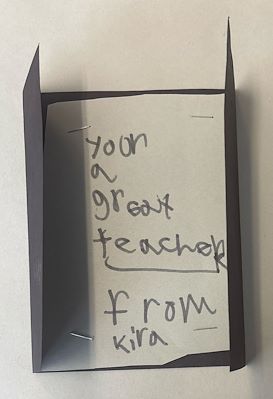 your
a
great
teacher
from
kira